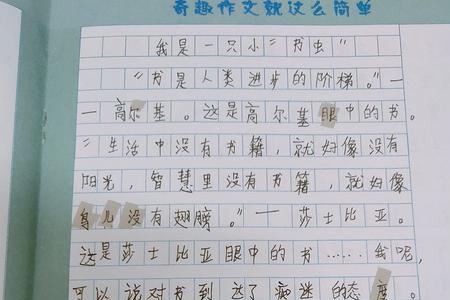 奇趣作文就这么简单
我是一只小“书虫”
“书是人类进步的阶梯。”—
—高尔基。这是高尔基眼中的书。
“生活中没有书籍，就好像没有
阳光，智慧里没有书籍，就好像
鸟儿没有翅膀。”—莎士比亚。
这是莎士比亚眼中的书……我呢，
可以说对书到达了痴迷的态度。